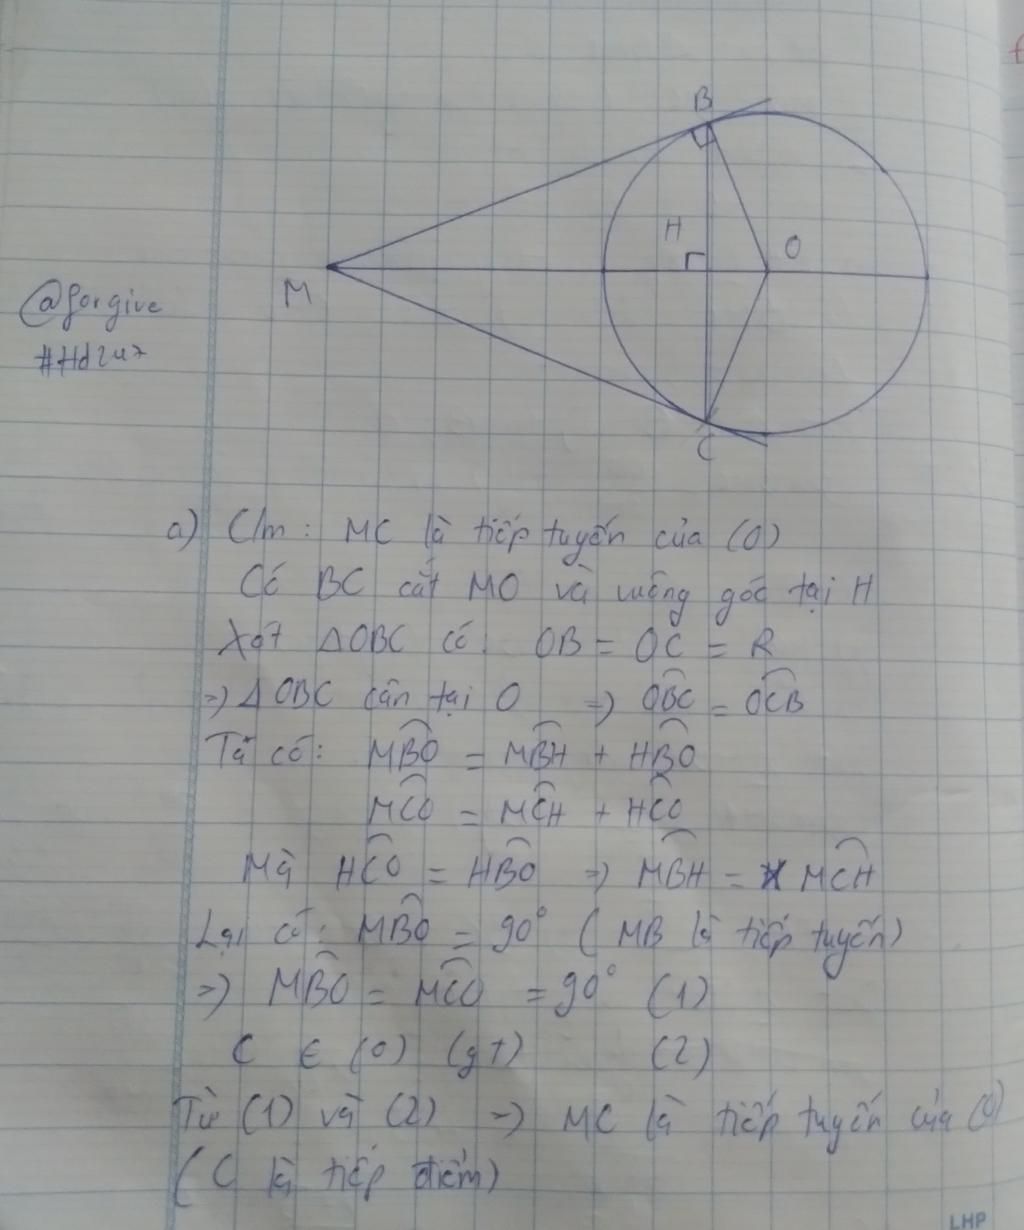 B
H
O
M
@forgive
#Hd247
C
a) C/m : MC là tiếp tuyến của (O)
Có BC cắt MO và vuông góc tại H
Xét ΔOBC có : OB = OC = R
=> ΔOBC cân tại O => \widehat{OBC} = \widehat{OCB}
Ta có : \widehat{MBO} = \widehat{MBH} + \widehat{HBO}
\widehat{MCO} = \widehat{MCH} + \widehat{HCO}
Mà \widehat{HCO} = \widehat{HBO} => \widehat{MBH} = \widehat{MCH}
Lại có : \widehat{MBO} = 90° ( MB là tiếp tuyến)
=> \widehat{MBO} = \widehat{MCO} = 90° (1)
C ∈ (O) (gt) (2)
Từ (1) và (2) => MC là tiếp tuyến của (O)
( C là tiếp điểm)
LHP